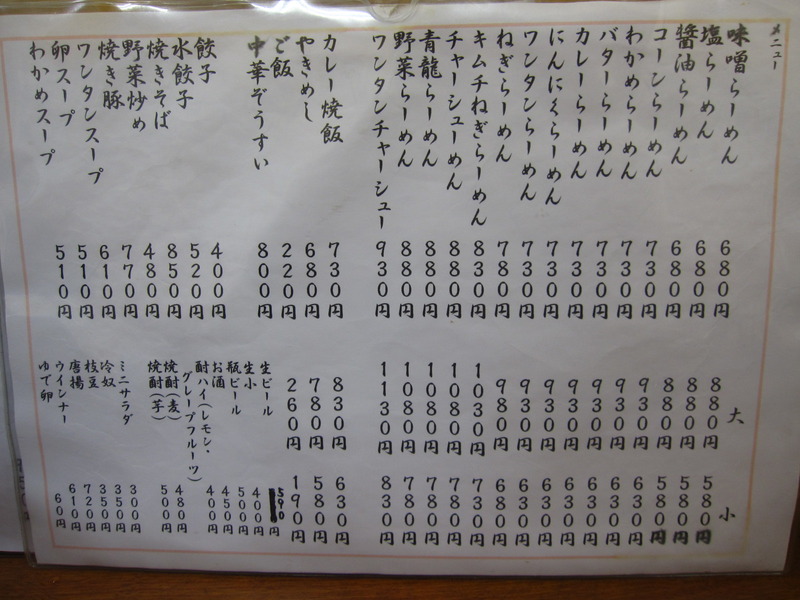 メニュー
大
小
味噌らーめん 680円 880円 580円
塩らーめん 680円 880円 580円
醬油らーめん 680円 880円 580円
コーンらーめん 730円 930円 630円
わかめらーめん 730円 930円 630円
バターらーめん 730円 930円 630円
カレーらーめん 730円 930円 630円
にんにくらーめん 730円 930円 630円
ワンタンらーめん 730円 930円 630円
ねぎらーめん 780円 980円 680円
キムチねぎらーめん 830円 1030円 730円
チャーシューめん 880円 1080円 780円
青龍らーめん 880円 1080円 780円
野菜らーめん 880円 1080円 780円
ワンタンチャーシュー 930円 1130円 830円
カレー焼飯 730円 830円 630円
やきめし 680円 780円 580円
ご飯 220円 260円 190円
中華ぞうすい 800円
餃子 400円
水餃子 520円
焼きそば 850円
野菜炒め 480円
焼き豚 770円
ワンタンスープ 610円
卵スープ 510円
わかめスープ 510円
生ビール 590円
生小 400円
瓶ビール 500円
お酒 450円
酎ハイ(レモン・
グレープフルーツ) 400円
焼酎(麦) 480円
焼酎(芋) 500円
ミニサラダ 300円
冷奴 350円
枝豆 350円
唐揚 720円
ウインナー 610円
ゆで卵 60円